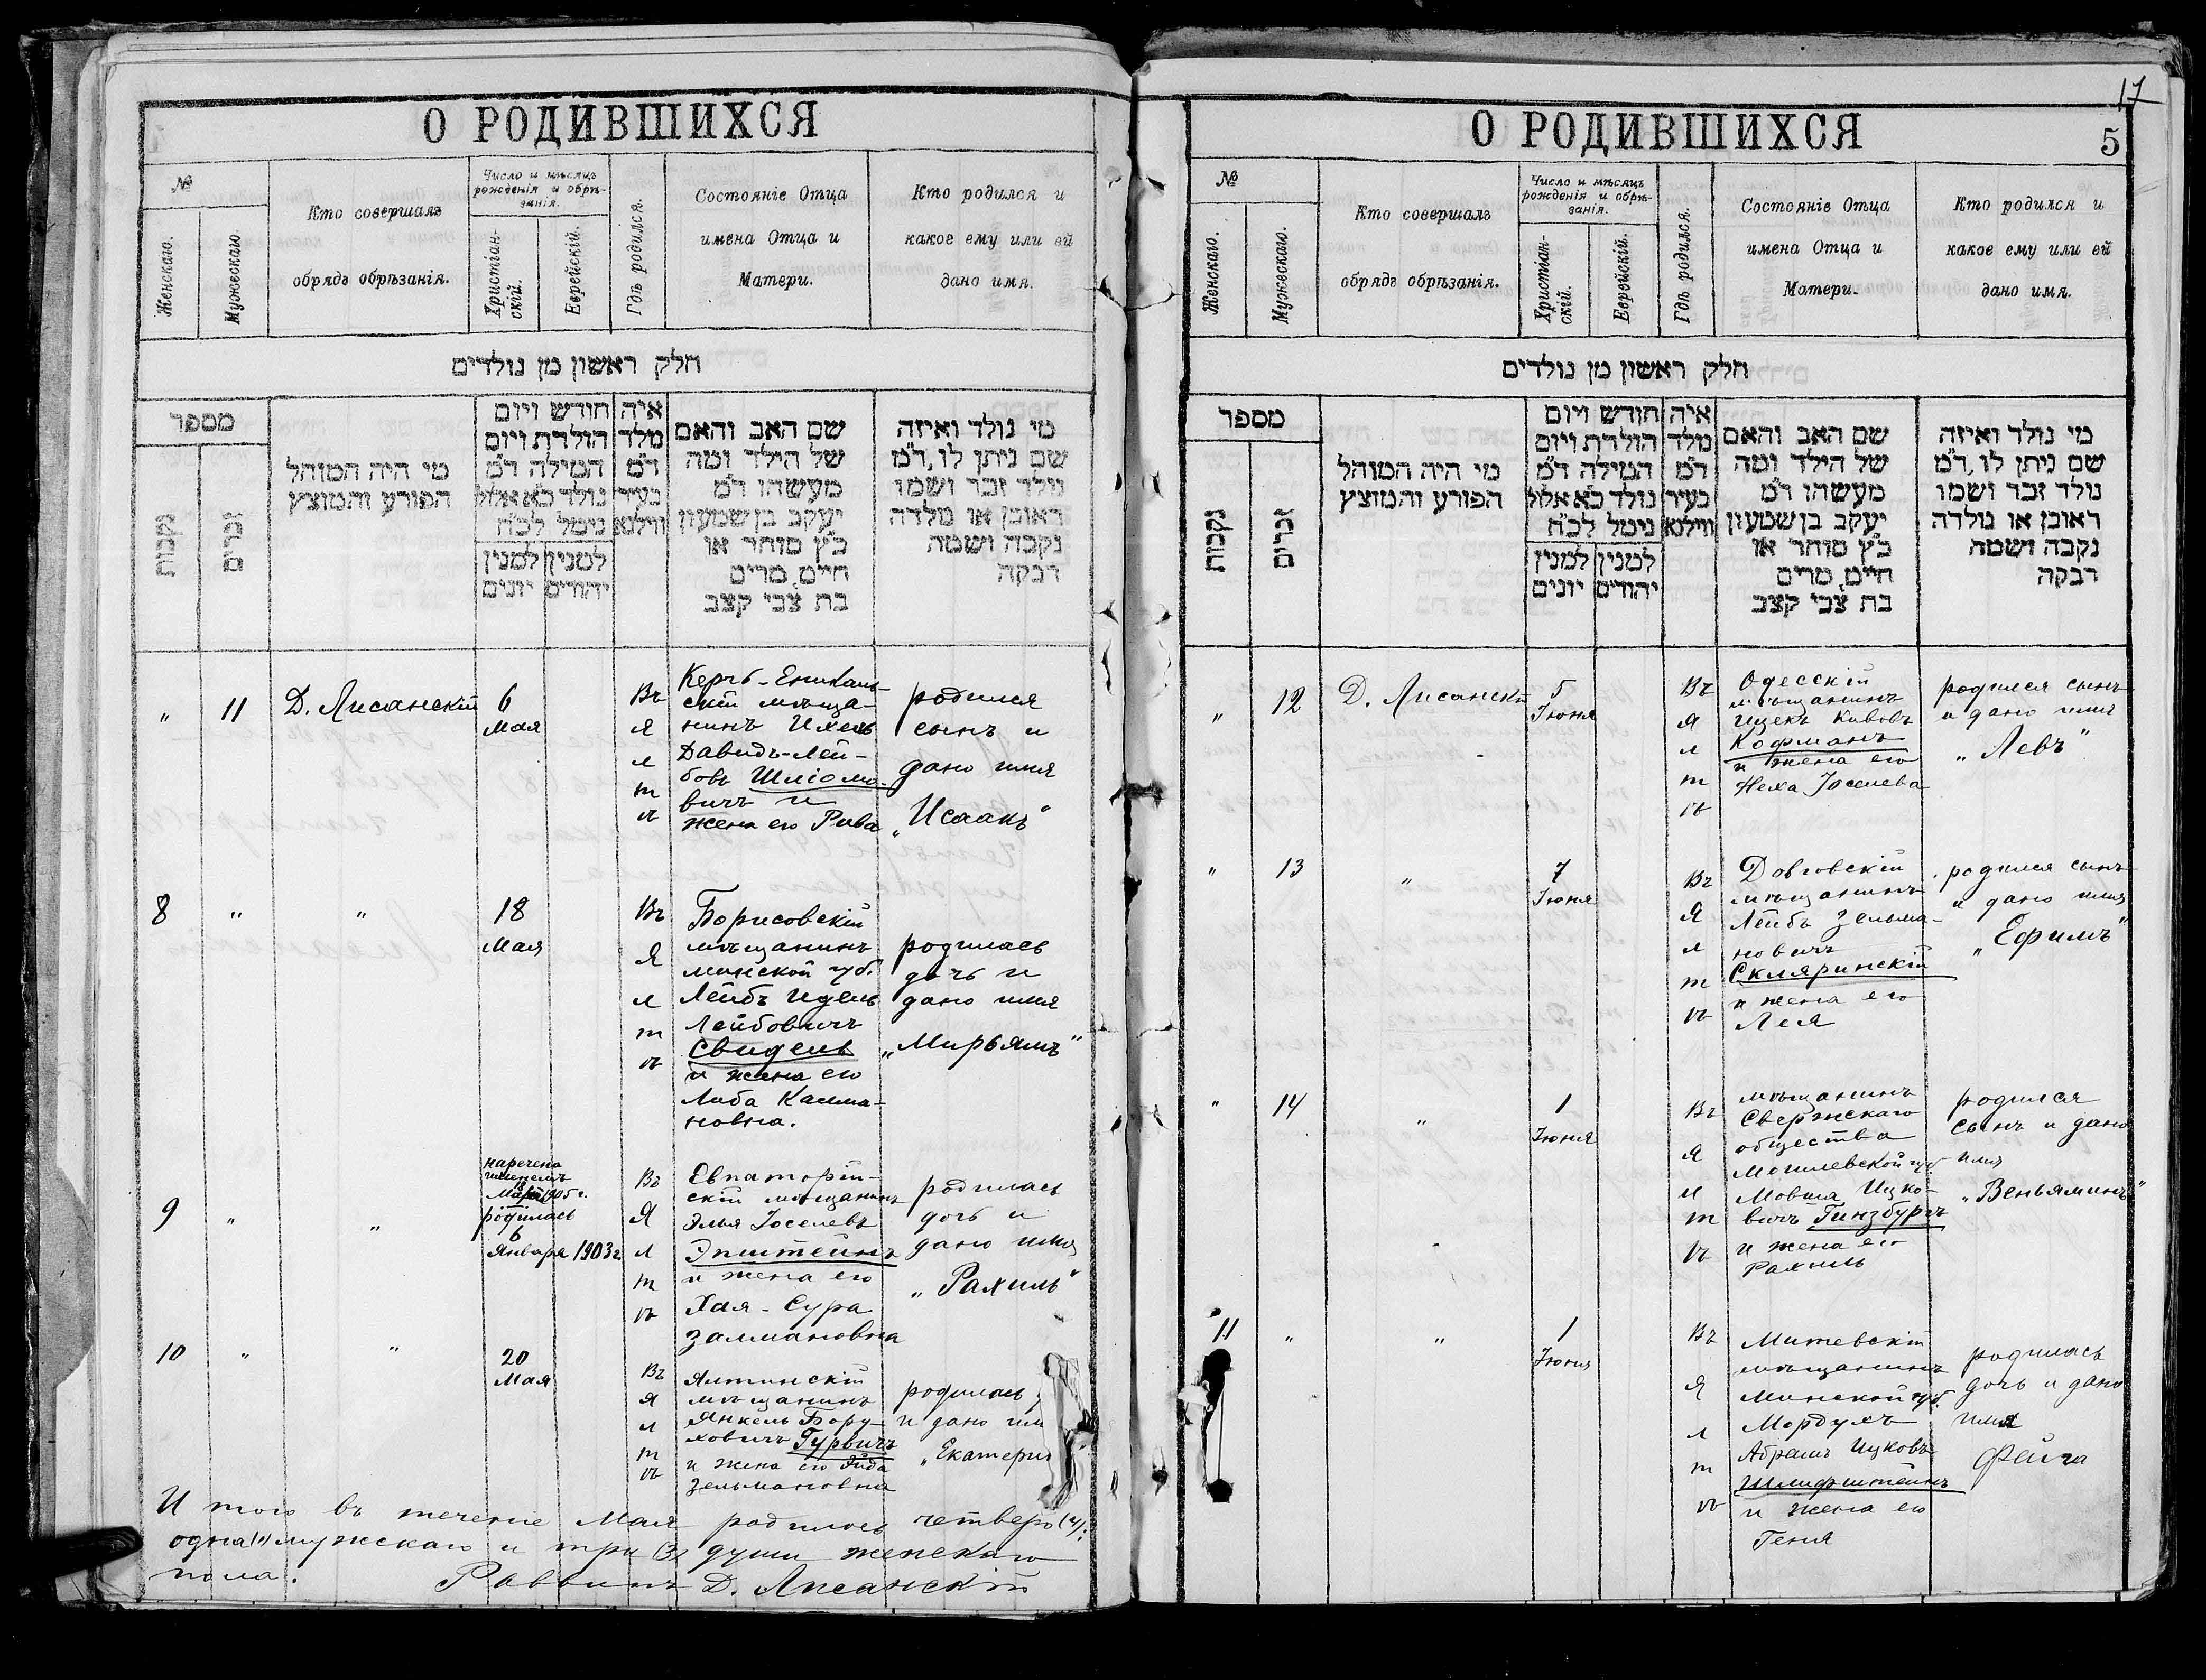 О РОДИВШИХСЯ
№
Женскаго.
Мужескаго.
Кто совершалъ
обрядъ обрѣзанія.
Число и мѣсяцъ
рожденія и обрѣ-
занія.
Христіан-
скій.
Еврейскій.
Гдѣ родился.
Состояніе Отца
имена Отца и
Матери.
Кто родился и
какое ему или ей
дано имя.
חלק ראשון מן נולדים
מספר
נקבות
זכרים
מי היה המוהל
הפורע והמוצץ
חודש ויום
הולדת ויום
המילה ד״מ
נולד כ״א אלול
נימל לכ״ח
למנין
יהודים
למנין
יונים
איה
מלד
ד״מ
בעיר
ווילנא
שם האב והאם
של הילד ומה
מעשהו ד״מ
יעקב בן שמעון
כ״ץ סוחר או
חיים, מרים
בת צבי קצב
מי נולד ואיזה
שם ניתן לו, ד״מ
נולד זכר ושמו
ראובן או נולדה
נקבה ושמה
רבקה
„ 11 Д. Лисанскій
6
Мая
Въ
Я
л
т
ѣ
Керчь-Еникаль-
скій мѣща-
нинъ Ихель
Давидъ-Лей-
бовъ Шліомо-
вичъ и
жена его Рива
родился
сынъ и
дано имя
„Исаакъ"
8 „ „
18
Мая
Въ
Я
л
т
ѣ
Борисовскій
мѣщанинъ
минской губ.
Лейбъ Идель
Лейбовичъ
Свидель
и жена его
Либа Калма-
новна.
родилась
дочь и
дано имя
„Мирьямъ"
9 „ „
наречена
именемъ
18
1905 г.
родилась
6
Января 1903 г.
Въ
Я
л
т
ѣ
Евпаторій-
скій мѣщанинъ
Элья Іоселевъ
Эпштейнъ
и жена его
Хая-Сура
Залмановна
родилась
дочь и
дано имя
„Рахиль"
10 „ „
20
Мая
Въ
Я
л
т
ѣ
Ялтинскій
мѣщанинъ
Янкель Бору-
ховичъ Гурвичъ
и жена его
Зельмановна
родилась
и дано им
„Екатери
И того въ теченіе Мая родилось четверо (4):
одна (1) мужскаго и три (3) души женскаго
пола.
Раввинъ Д. Лисанскій
17
5
О РОДИВШИХСЯ
№
Женскаго.
Мужескаго.
Кто совершалъ
обрядъ обрѣзанія.
Число и мѣсяцъ
рожденія и обрѣ-
занія.
Христіан-
скій.
Еврейскій.
Гдѣ родился.
Состояніе Отца
имена Отца и
Матери.
Кто родился и
какое ему или ей
дано имя.
חלק ראשון מן נולדים
מספר
נקבות
זכרים
מי היה המוהל
הפורע והמוצץ
חודש ויום
הולדת ויום
המילה ד״מ
נולד כ״א אלול
נימל לכ״ח
למנין
יהודים
למנין
יונים
איה
מלד
ד״מ
בעיר
ווילנא
שם האב והאם
של הילד ומה
מעשהו ד״מ
יעקב בן שמעון
כ״ץ סוחר או
חיים, מרים
בת צבי קצב
מי נולד ואיזה
שם ניתן לו, ד״מ
נולד זכר ושמו
ראובן או נולדה
נקבה ושמה
רבקה
„ 12 Д. Лисанскій
5
Іюня
Въ
Я
л
т
ѣ
Одесскій
мѣщанинъ
Ицекъ Кивовъ
Кофманъ
и жена его
Неха Іоселева
родился сынъ
и дано имя
„Левъ"
„ 13 „
7
Іюня
Въ
Я
л
т
ѣ
мѣщанинъ
Лейбъ Зельма-
новичъ
Скляринскій
и жена его
Лея
родился сынъ
и дано имя
„Ефимъ"
„ 14 „
1
Іюня
Въ
Я
л
т
ѣ
мѣщанинъ
Свержскаго
общества
Могилевской губ
Мовша Ицко-
вичъ Гинзбургъ
и жена его
Рахиль
родился
сынъ и дано
имя
„Веньяминъ"
11 „ „
1
Іюня
Въ
Я
л
т
ѣ
мѣщанинъ
Минской губ.
Мордухъ
Абрамъ Ицковъ
Шлифштейнъ
и жена его
Геня
родилась
дочь и дано
имя
Фейга